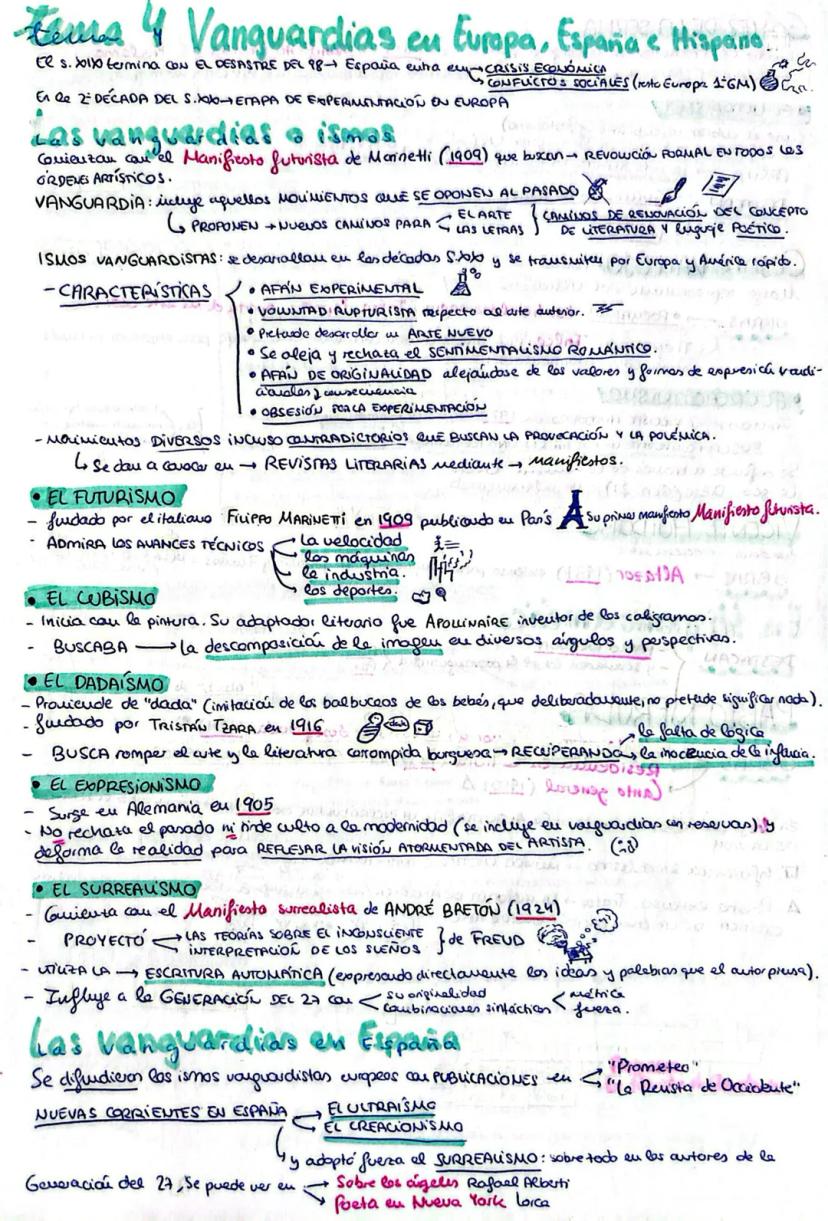 Tema 4 Vanguardias en Europa, España e Hispano.
El s. XIX termina con EL DESASTRE DEL 98 → España entra en → CRISIS ECONÓMICA
→ CONFLICTOS SOCIALES (resto Europa 1ªGM)
En la 2ª DÉCADA DEL S.XX → ETAPA DE EXPERIMENTACIÓN EN EUROPA
Las vanguardias o ismos
Comienzan con el Manifiesto futurista de Marinetti (1909) que buscan → REVOLUCIÓN FORMAL EN TODOS LOS
ÓRDENES ARTÍSTICOS.
VANGUARDIA: incluye aquellos MOVIMIENTOS QUE SE OPONEN AL PASADO
↳ PROPONEN → NUEVOS CAMINOS PARA < EL ARTE
LAS LETRAS } CAMINOS DE RENOVACIÓN DEL CONCEPTO
DE LITERATURA Y lenguaje POÉTICO.
ISMOS VANGUARDISTAS: se desarrollan en las décadas S.XX y se transmiten por Europa y América rápido.
- CARACTERÍSTICAS
• AFÁN EXPERIMENTAL
• VOLUNTAD RUPTURISTA respecto al arte anterior.
• Pretende desarrollar un ARTE NUEVO
• Se aleja y rechaza el SENTIMENTALISMO ROMÁNTICO.
• AFÁN DE ORIGINALIDAD alejándose de los valores y formas de expresión tradi-
cionales y consecuencia
• OBSESIÓN POR LA EXPERIMENTACIÓN
- MOVIMIENTOS DIVERSOS INCLUSO CONTRADICTORIOS QUE BUSCAN LA PROVOCACIÓN Y LA POLÉMICA.
↳ Se dan a conocer en → REVISTAS LITERARIAS mediante → manifiestos.
• EL FUTURISMO
- fundado por el italiano FILIPPO MARINETTI en 1909 publicando en París su primer manifiesto Manifiesto futurista.
- ADMIRA LOS AVANCES TÉCNICOS
la velocidad
las máquinas
la industria.
los deportes.
• EL CUBISMO
- Inicia con la pintura. Su adaptador literario fue APOLLINAIRE inventor de los caligramas.
- BUSCABA → la descomposición de la imagen en diversos ángulos y perspectivas.
• EL DADAÍSMO
- Proviende de "dada" (imitación de los balbuceos de los bebés, que deliberadamente, no pretende significar nada).
- fundado por TRISTÁN TZARA en 1916
- BUSCA romper el arte y la literatura corrompida burguesa → RECUPERANDO → la falta de lógica
→ la inocencia de la infancia.
• EL EXPRESIONISMO
- Surge en Alemania en 1905
- No rechaza el pasado ni rinde culto a la modernidad (se incluye en vanguardias con reservas) y
deforma la realidad para REFLEJAR LA VISIÓN ATORMENTADA DEL ARTISTA.
• EL SURREALISMO
- Comienza con el Manifiesto surrealista de ANDRÉ BRETÓN (1924)
- PROYECTÓ → LAS TEORÍAS SOBRE EL INCONSCIENTE
→ INTERPRETACIÓN DE LOS SUEÑOS } de FREUD
- UTILIZA LA → ESCRITURA AUTOMÁTICA (expresando directamente las ideas y palabras que el autor piensa).
- Influye a la GENERACIÓN DEL 27 con < su originalidad
combinaciones sintácticas < métrica
fuerza.
Las vanguardias en España
Se difundieron los ismos vanguardistas europeos con PUBLICACIONES en < "Prometeo"
"La Revista de Occidente"
NUEVAS CORRIENTES EN ESPAÑA → EL ULTRAÍSMO
→ EL CREACIONISMO
↳ y adoptó fuerza el SURREALISMO: sobre todo en los autores de la
Generación del 27, Se puede ver en → Sobre los ángeles Rafael Alberti
→ Poeta en Nueva York Lorca